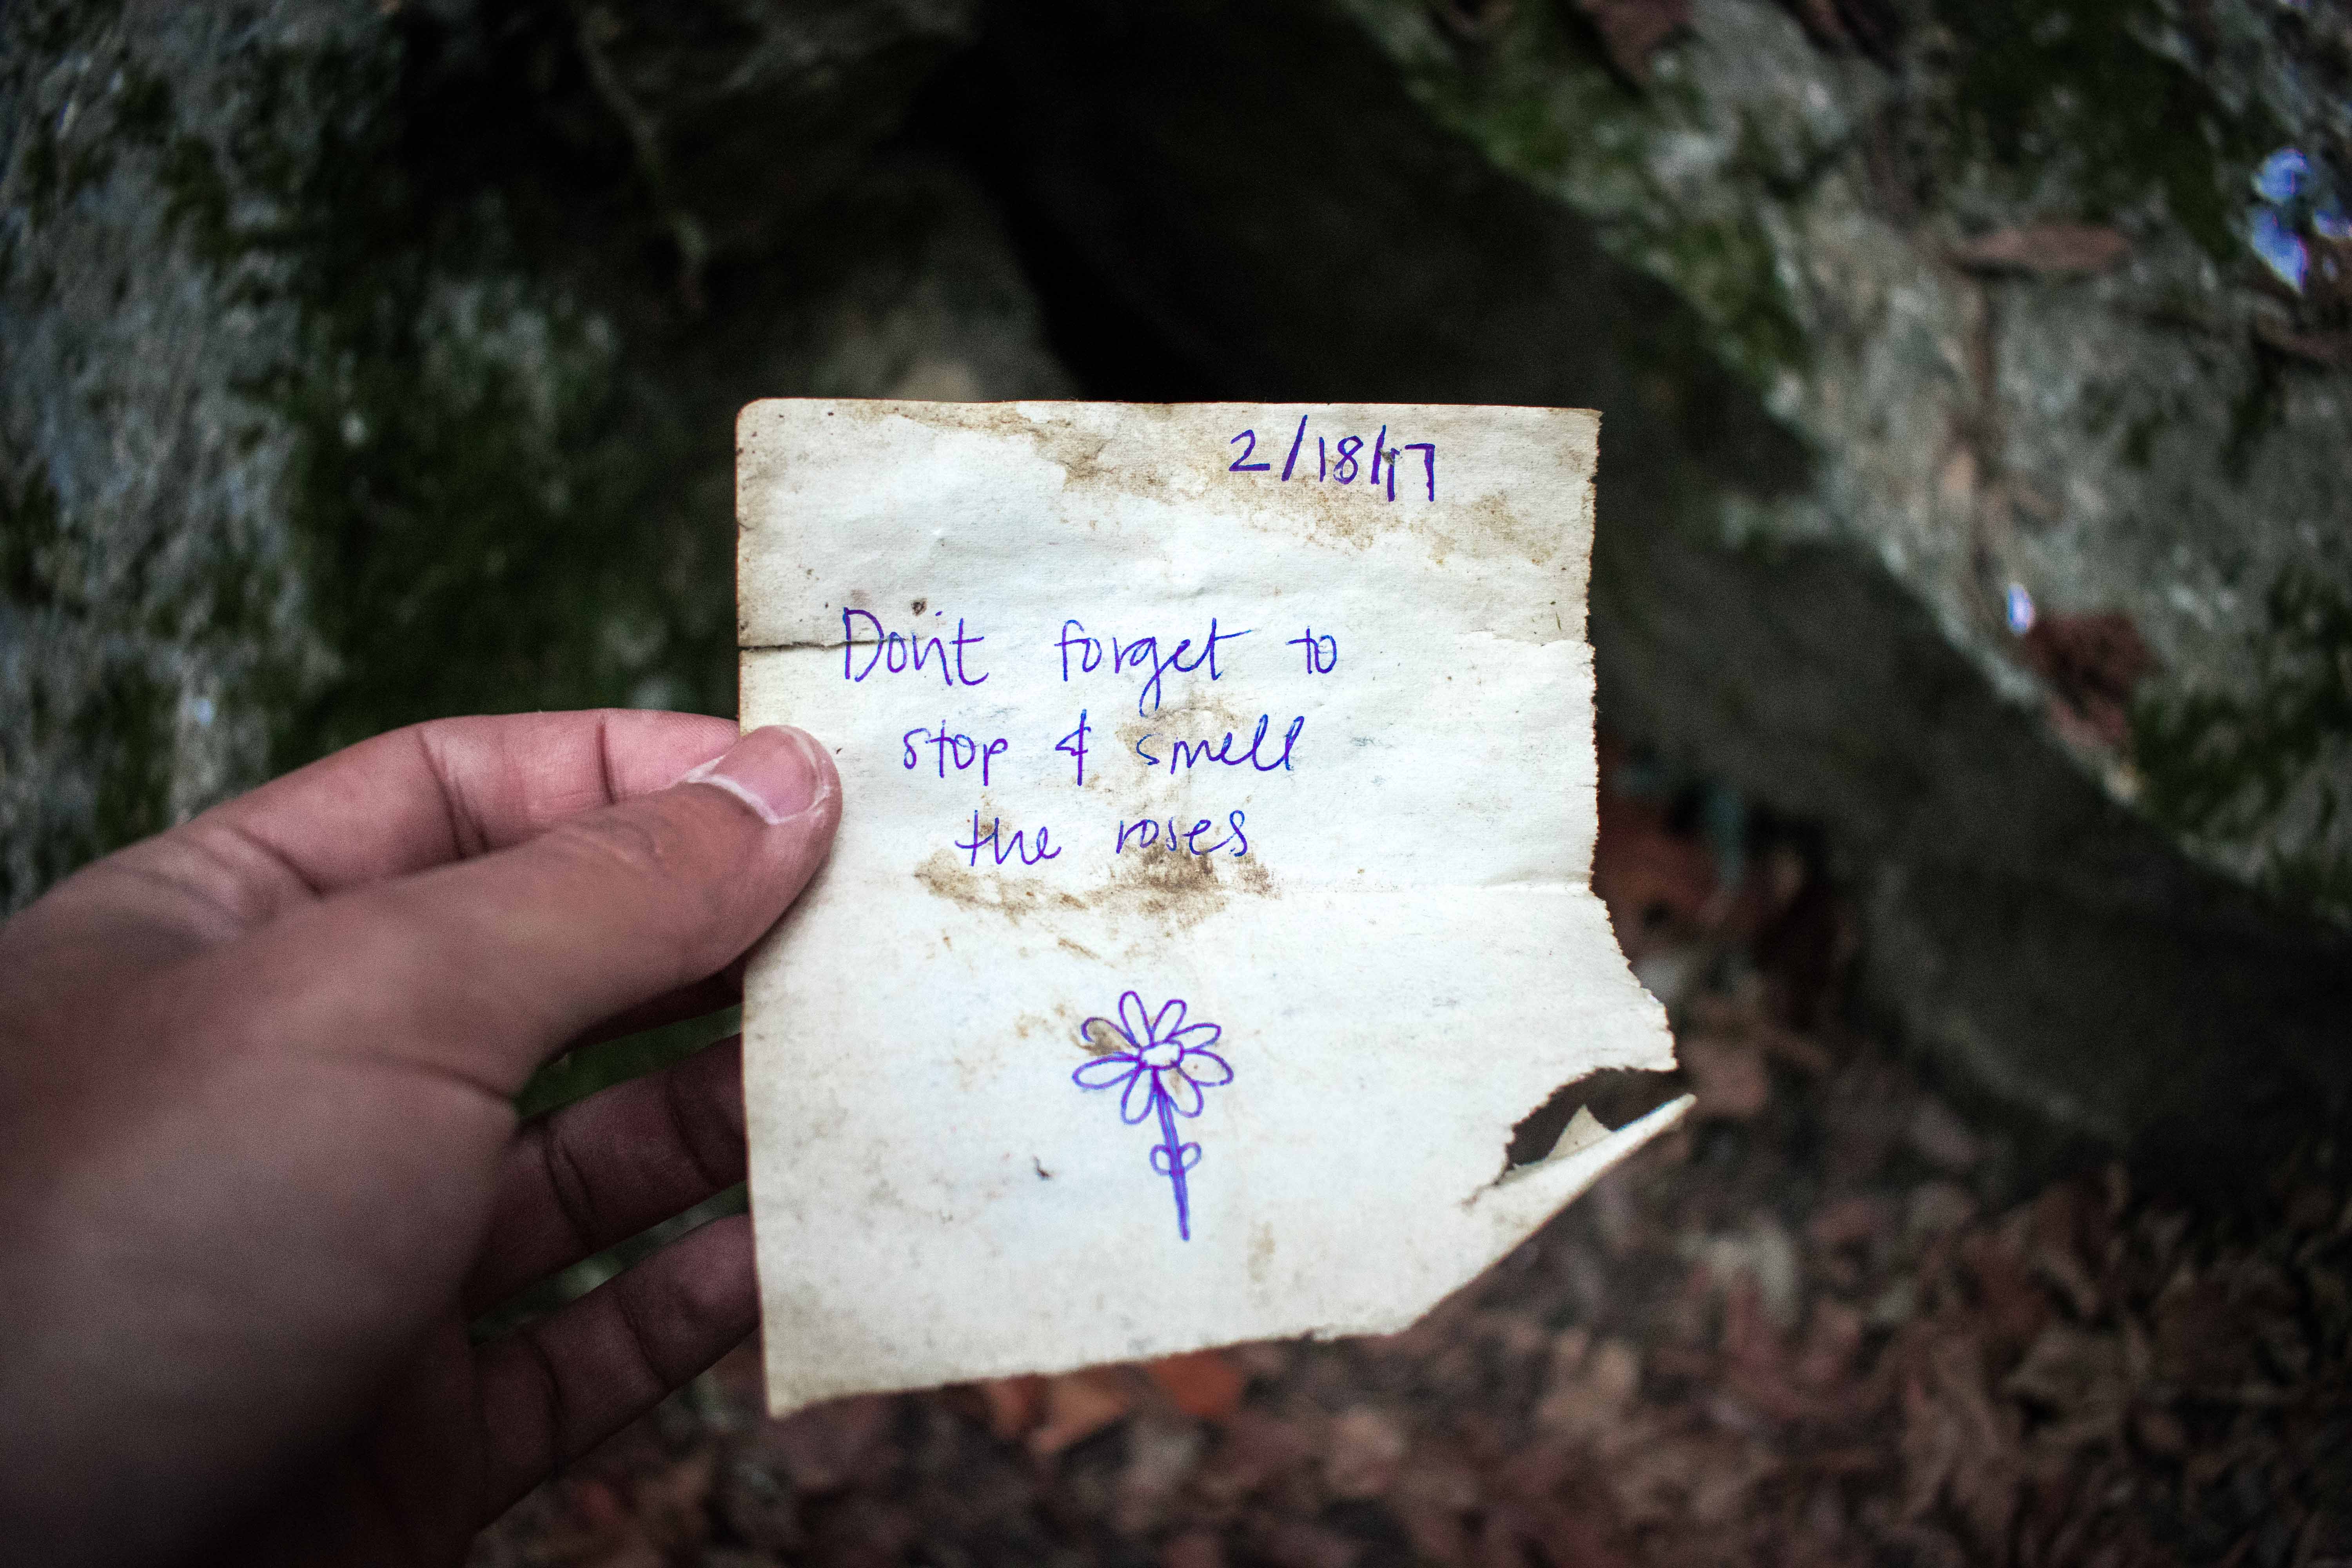 2/18/17
Don't forget to
stop & smell
the roses